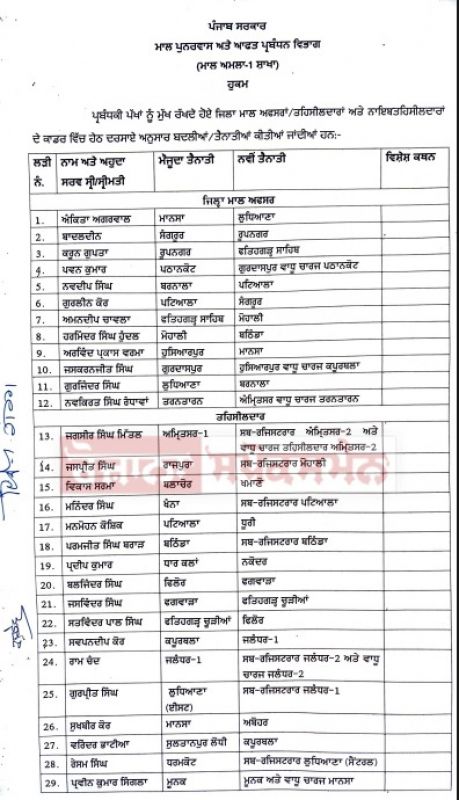 ਪੰਜਾਬ ਸਰਕਾਰ
ਮਾਲ ਪੁਨਰਵਾਸ ਅਤੇ ਆਫਤ ਪ੍ਰਬੰਧਨ ਵਿਭਾਗ
(ਮਾਲ ਅਮਲਾ-1 ਸ਼ਾਖਾ)
ਹੁਕਮ
ਪ੍ਰਬੰਧਕੀ ਪੱਖਾਂ ਨੂੰ ਮੁੱਖ ਰੱਖਦੇ ਹੋਏ ਜਿਲਾ ਮਾਲ ਅਫਸਰਾਂ/ਤਹਿਸੀਲਦਾਰਾਂ ਅਤੇ ਨਾਇਬਤਹਿਸੀਲਦਾਰਾਂ
ਦੇ ਕਾਡਰ ਵਿੱਚ ਹੇਠ ਦਰਸਾਏ ਅਨੁਸਾਰ ਬਦਲੀਆਂ/ਤੈਨਾਤੀਆਂ ਕੀਤੀਆਂ ਜਾਂਦੀਆਂ ਹਨ:-
ਲੜੀ ਨੰ. ਨਾਮ ਅਤੇ ਅਹੁਦਾ ਸਰਵ ਸ੍ਰੀ/ਸ੍ਰੀਮਤੀ ਮੌਜੂਦਾ ਤੈਨਾਤੀ ਨਵੀਂ ਤੈਨਾਤੀ ਵਿਸ਼ੇਸ਼ ਕਥਨ
ਜਿਲ੍ਹਾ ਮਾਲ ਅਫਸਰ
1. ਅੰਕਿਤਾ ਅਗਰਵਾਲ ਮਾਨਸਾ ਲੁਧਿਆਣਾ
2. ਬਾਦਲਦੀਨ ਸੰਗਰੂਰ ਰੂਪਨਗਰ
3. ਕਰੂਨ ਗੁਪਤਾ ਰੂਪਨਗਰ ਫਤਿਹਗੜ੍ਹ ਸਾਹਿਬ
4. ਪਵਨ ਕੁਮਾਰ ਪਠਾਨਕੋਟ ਗੁਰਦਾਸਪੁਰ ਵਾਧੂ ਚਾਰਜ ਪਠਾਨਕੋਟ
5. ਨਵਦੀਪ ਸਿੰਘ ਬਰਨਾਲਾ ਪਟਿਆਲਾ
6. ਗੁਰਲੀਨ ਕੌਰ ਪਟਿਆਲਾ ਸੰਗਰੂਰ
7. ਅਮਨਦੀਪ ਚਾਵਲਾ ਫਤਿਹਗੜ੍ਹ ਸਾਹਿਬ ਮੋਹਾਲੀ
8. ਹਰਮਿੰਦਰ ਸਿੰਘ ਹੁੰਦਲ ਮੋਹਾਲੀ ਬਠਿੰਡਾ
9. ਅਰਵਿੰਦ ਪ੍ਰਕਾਸ ਵਰਮਾ ਹੁਸਿਆਰਪੁਰ ਮਾਨਸਾ
10. ਜਸਕਰਨਜੀਤ ਸਿੰਘ ਗੁਰਦਾਸਪੁਰ ਹੁਸਿਆਰਪੁਰ ਵਾਧੂ ਚਾਰਜ ਕਪੂਰਥਲਾ
11. ਗੁਰਜਿੰਦਰ ਸਿੰਘ ਲੁਧਿਆਣਾ ਬਰਨਾਲਾ
12. ਨਵਕਿਰਤ ਸਿੰਘ ਰੰਧਾਵਾਂ ਤਰਨਤਾਰਨ ਅੰਮ੍ਰਿਤਸਰ ਵਾਧੂ ਚਾਰਜ ਤਰਨਤਾਰਨ
ਤਹਿਸੀਲਦਾਰ
13. ਜਗਸੀਰ ਸਿੰਘ ਮਿੱਤਲ ਅਮ੍ਰਿਤਸਰ-1 ਸਬ-ਰਜਿਸਟਰਾਰ ਅੰਮ੍ਰਿਤਸਰ-2 ਅਤੇ
ਵਾਧੂ ਚਾਰਜ ਤਹਿਸੀਲਦਾਰ ਅਮ੍ਰਿਤਸਰ-2
14. ਜਸਪ੍ਰੀਤ ਸਿੰਘ ਰਾਜਪੁਰਾ ਸਬ-ਰਜਿਸਟਰਾਰ ਮੋਹਾਲੀ
15. ਵਿਕਾਸ ਸਰਮਾ ਬਲਾਚੌਰ ਖਮਾਣੋਂ
16. ਮਨਿੰਦਰ ਸਿੰਘ ਖੰਨਾ ਸਬ-ਰਜਿਸਟਰਾਰ ਪਟਿਆਲਾ
17. ਮਨਮੋਹਨ ਕੌਸ਼ਿਕ ਪਟਿਆਲਾ ਧੂਰੀ
18. ਪਰਮਜੀਤ ਸਿੰਘ ਬਰਾੜ ਬਠਿੰਡਾ ਸਬ-ਰਜਿਸਟਰਾਰ ਬਠਿੰਡਾ
19. ਪ੍ਰਦੀਪ ਕੁਮਾਰ ਧਾਰ ਕਲਾਂ ਨਕੋਦਰ
20. ਬਲਜਿੰਦਰ ਸਿੰਘ ਫਿਲੌਰ ਫਗਵਾੜਾ
21. ਜਸਵਿੰਦਰ ਸਿੰਘ ਫਗਵਾੜਾ ਫਤਿਹਗੜ੍ਹ ਚੂੜੀਆਂ
22. ਸਤਵਿੰਦਰ ਪਾਲ ਸਿੰਘ ਫਤਿਹਗੜ੍ਹ ਚੂੜੀਆਂ ਫਿਲੌਰ
23. ਸਵਪਨਦੀਪ ਕੌਰ ਕਪੂਰਥਲਾ ਜਲੰਧਰ-1
24. ਰਾਮ ਚੰਦ ਜਲੰਧਰ-1 ਸਬ-ਰਜਿਸਟਰਾਰ ਜਲੰਧਰ-2 ਅਤੇ ਵਾਧੂ
ਚਾਰਜ ਜਲੰਧਰ-2
25. ਗੁਰਪ੍ਰੀਤ ਸਿੰਘ ਲੁਧਿਆਣਾ (ਈਸਟ) ਸਬ-ਰਜਿਸਟਰਾਰ ਜਲੰਧਰ-1
26. ਸੁਖਬੀਰ ਕੌਰ ਮਾਨਸਾ ਅਬੋਹਰ
27. ਵਰਿੰਦਰ ਭਾਟੀਆ ਸੁਲਤਾਨਪੁਰ ਲੋਧੀ ਕਪੂਰਥਲਾ
28. ਰੇਸਮ ਸਿੰਘ ਧਰਮਕੋਟ ਸਬ-ਰਜਿਸਟਰਾਰ ਲੁਧਿਆਣਾ (ਸੈਂਟਰਲ)
29. ਪ੍ਰਵੀਨ ਕੁਮਾਰ ਸਿੰਗਲਾ ਮੂਨਕ ਮੂਨਕ ਅਤੇ ਵਾਧੂ ਚਾਰਜ ਮਾਨਸਾ